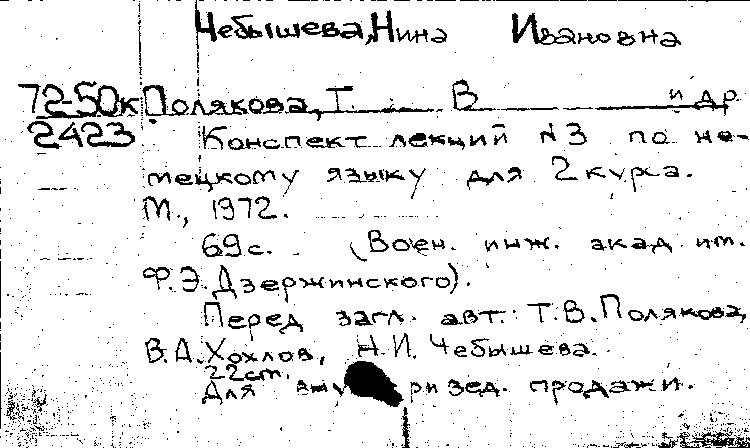 Чебышева, Нина Ивановна
72-50к Полякова, Т. В и др
2423 Конспект лекций N3 по не-
мецкому языку для 2 курса.
М., 1972.
69с. (Воен. инж. акад им.
Ф.Э.Дзержинского).
Перед загл. авт.: Т.В.Полякова,
В.А.Хохлов, Н.И. Чебышева.
22см.
Для продажи.